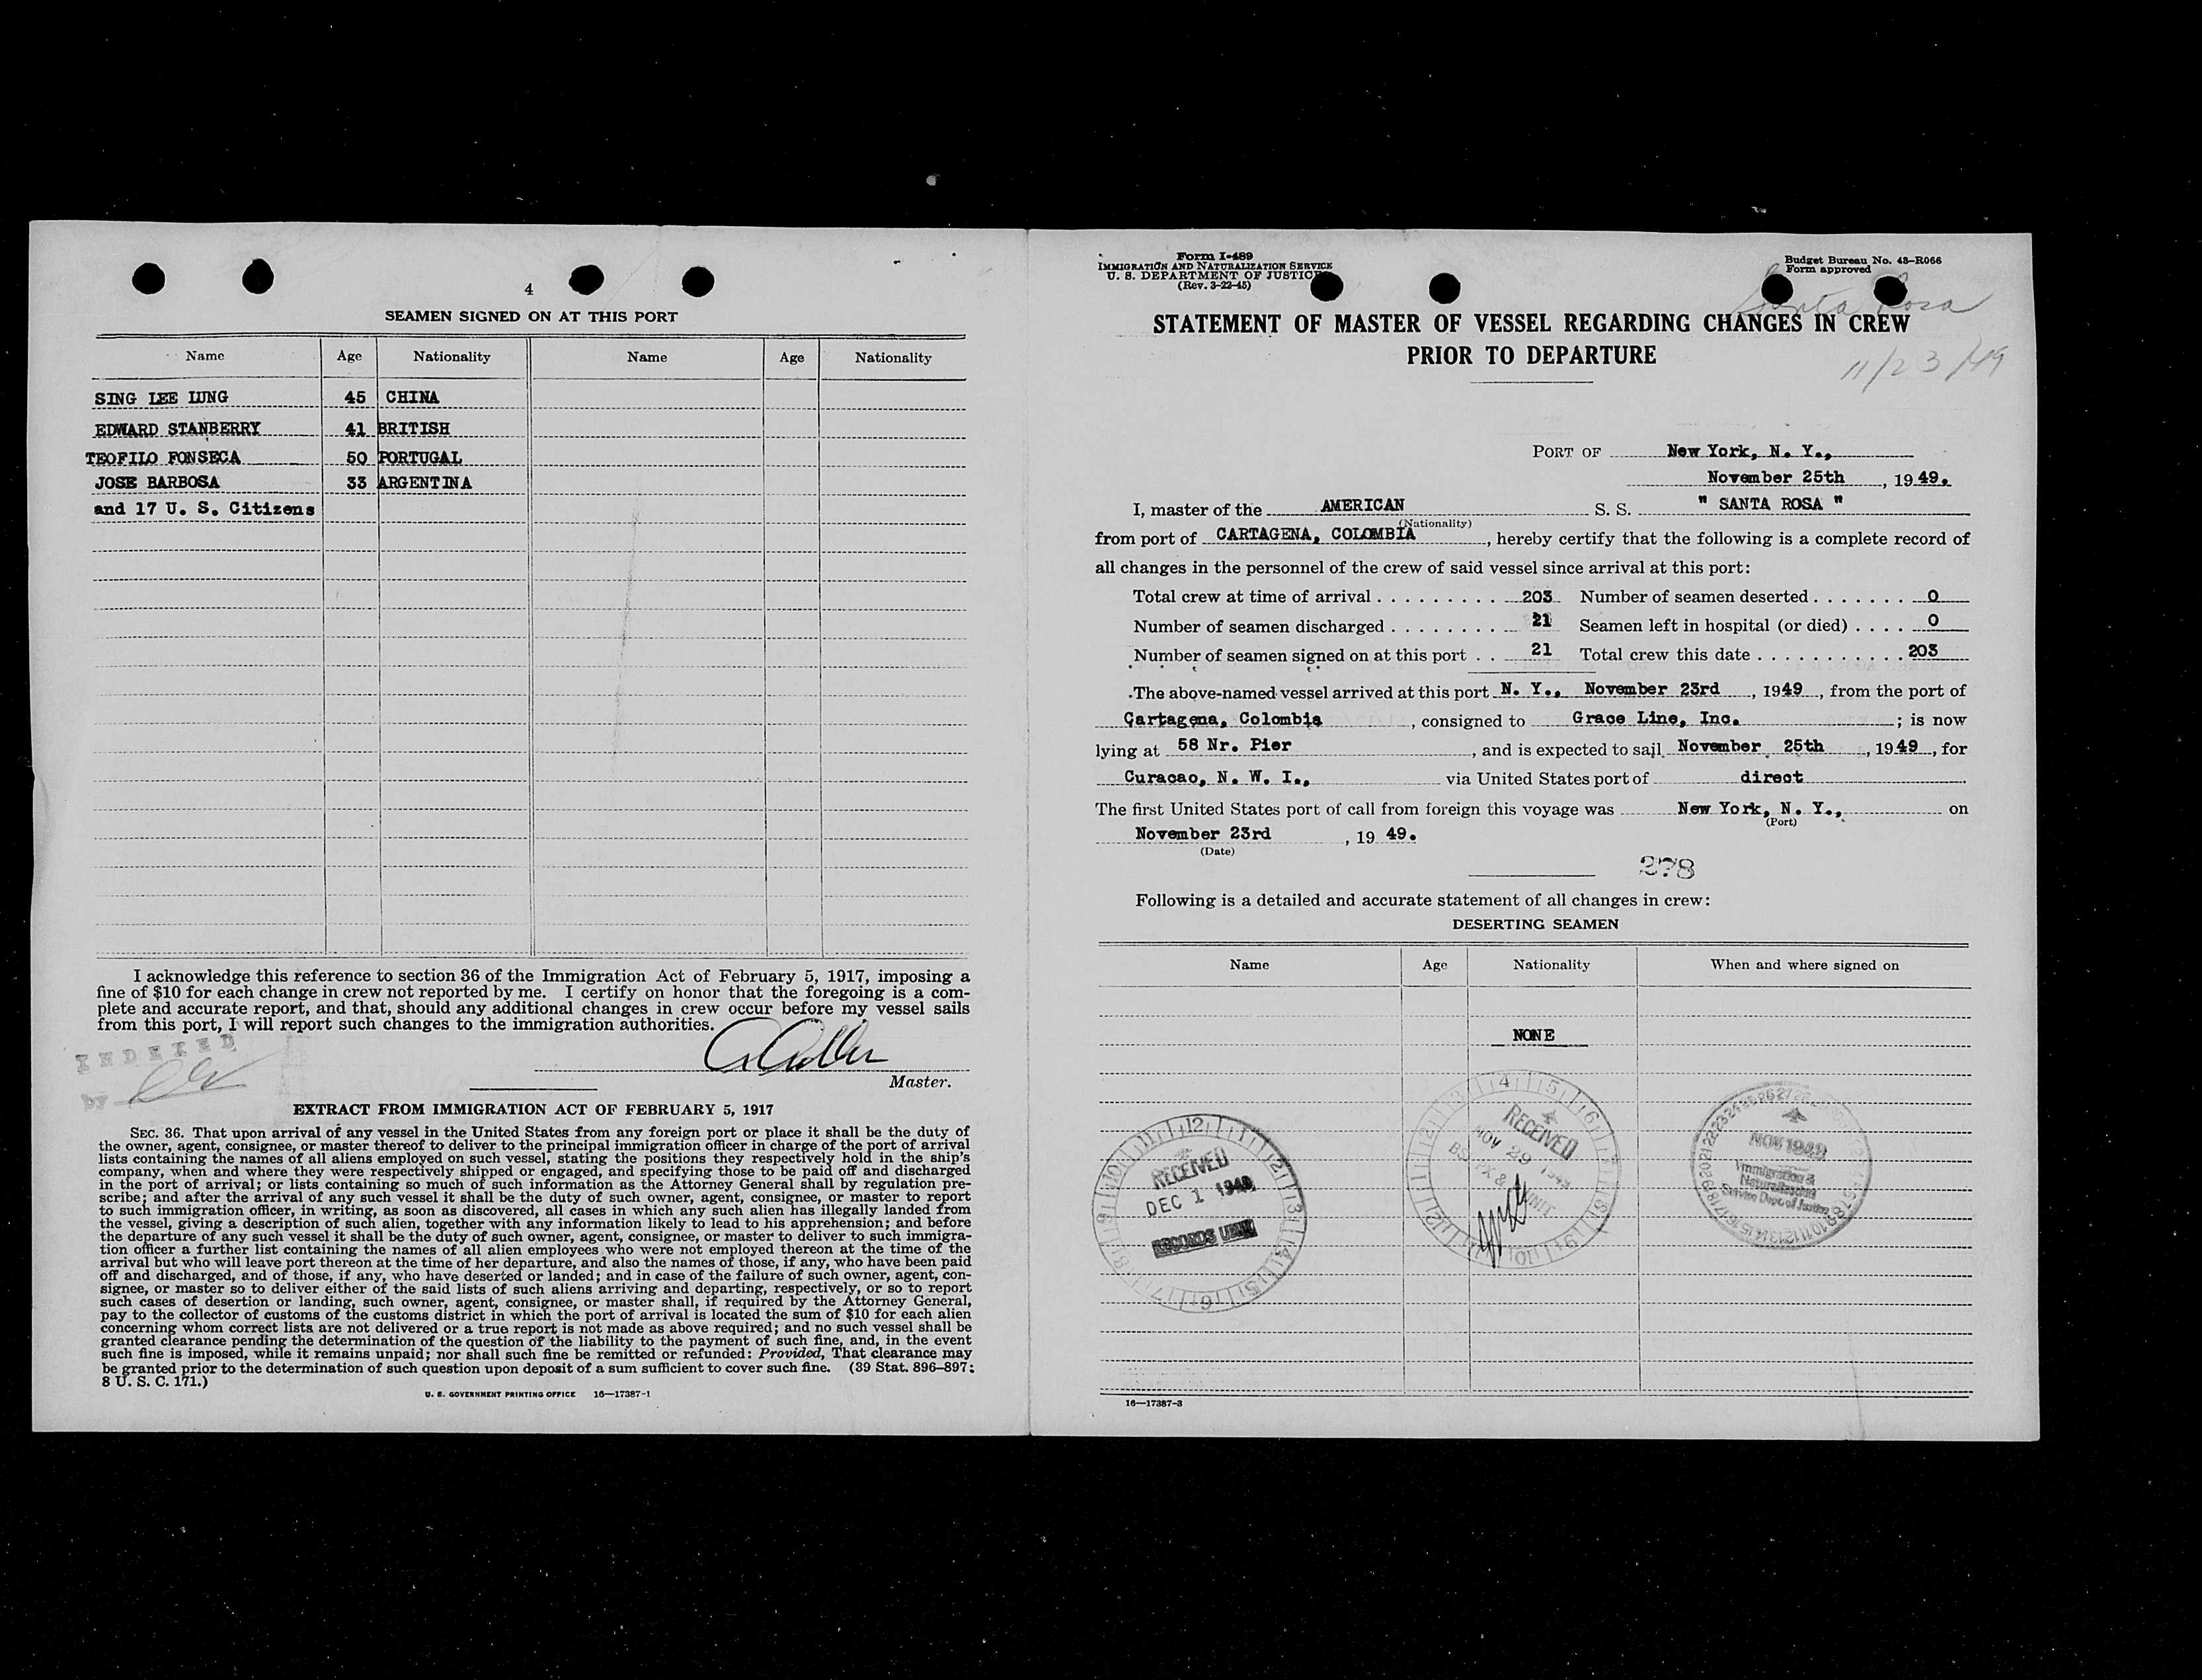 4
SEAMEN SIGNED ON AT THIS PORT
Name Age Nationality Name Age Nationality
SING LEE LUNG 45 CHINA
EDWARD STANBERRY 41 BRITISH
TEOFILO FONSECA 50 PORTUGAL
JOSE BARBOSA 33 ARGENTINA
and 17 U. S. Citizens
I acknowledge this reference to section 36 of the Immigration Act of February 5, 1917, imposing a
fine of $10 for each change in crew not reported by me. I certify on honor that the foregoing is a com-
plete and accurate report, and that, should any additional changes in crew occur before my vessel sails
from this port, I will report such changes to the immigration authorities.
INDEXED
by
Master.
EXTRACT FROM IMMIGRATION ACT OF FEBRUARY 5, 1917
SEC. 36. That upon arrival of any vessel in the United States from any foreign port or place it shall be the duty of
the owner, agent, consignee, or master thereof to deliver to the principal immigration officer in charge of the port of arrival
lists containing the names of all aliens employed on such vessel, stating the positions they respectively hold in the ship's
company, when and where they were respectively shipped or engaged, and specifying those to be paid off and discharged
in the port of arrival; or lists containing so much of such information as the Attorney General shall by regulation pre-
scribe; and after the arrival of any such vessel it shall be the duty of such owner, agent, consignee, or master to report
to such immigration officer, in writing, as soon as discovered, all cases in which any such alien has illegally landed from
the vessel, giving a description of such alien, together with any information likely to lead to his apprehension; and before
the departure of any such vessel it shall be the duty of such owner, agent, consignee, or master to deliver to such immigra-
tion officer a further list containing the names of all alien employees who were not employed thereon at the time of the
arrival but who will leave port thereon at the time of her departure, and also the names of those, if any, who have been paid
off and discharged, and of those, if any, who have deserted or landed; and in case of the failure of such owner, agent, con-
signee, or master so to deliver either of the said lists of such aliens arriving and departing, respectively, or so to report
such cases of desertion or landing, such owner, agent, consignee, or master shall, if required by the Attorney General,
pay to the collector of customs of the customs district in which the port of arrival is located the sum of $10 for each alien
concerning whom correct lists are not delivered or a true report is not made as above required; and no such vessel shall be
granted clearance pending the determination of the question of the liability to the payment of such fine, and, in the event
such fine is imposed, while it remains unpaid; nor shall such fine be remitted or refunded: Provided, That clearance may
be granted prior to the determination of such question upon deposit of a sum sufficient to cover such fine. (39 Stat. 896-897;
8 U. S. C. 171.)
U. S. GOVERNMENT PRINTING OFFICE 16—17387-1
Form I-489
IMMIGRATION AND NATURALIZATION SERVICE
U. S. DEPARTMENT OF JUSTICE
(Rev. 3-22-45)
Budget Bureau No. 43-R066
Form approved
Santa Rosa
STATEMENT OF MASTER OF VESSEL REGARDING CHANGES IN CREW
PRIOR TO DEPARTURE
11/23/49
PORT OF New York, N. Y.,
November 25th, 1949.
I, master of the AMERICAN S. S. " SANTA ROSA "
(Nationality)
from port of CARTAGENA, COLOMBIA, hereby certify that the following is a complete record of
all changes in the personnel of the crew of said vessel since arrival at this port:
Total crew at time of arrival . . . . . . . . . . 203 Number of seamen deserted . . . . . . . 0
Number of seamen discharged . . . . . . . . 21 Seamen left in hospital (or died) . . . . 0
Number of seamen signed on at this port . . 21 Total crew this date . . . . . . . . . . . 203
The above-named vessel arrived at this port N. Y., November 23rd, 1949, from the port of
Cartagena, Colombia, consigned to Grace Line, Inc. ; is now
lying at 58 Nr. Pier, and is expected to sail November 25th, 1949, for
Curacao, N. W. I., via United States port of direct
The first United States port of call from foreign this voyage was New York, N. Y., on
(Port)
November 23rd, 19 49.
(Date)
278
Following is a detailed and accurate statement of all changes in crew:
DESERTING SEAMEN
Name Age Nationality When and where signed on
NONE
RECEIVED
DEC 1 1949
RECORDS UNIT
RECEIVED
NOV 29 1949
UNIT
NOV 1949
Immigration &
Naturalization
Service Dept of Justice
16—17387-3